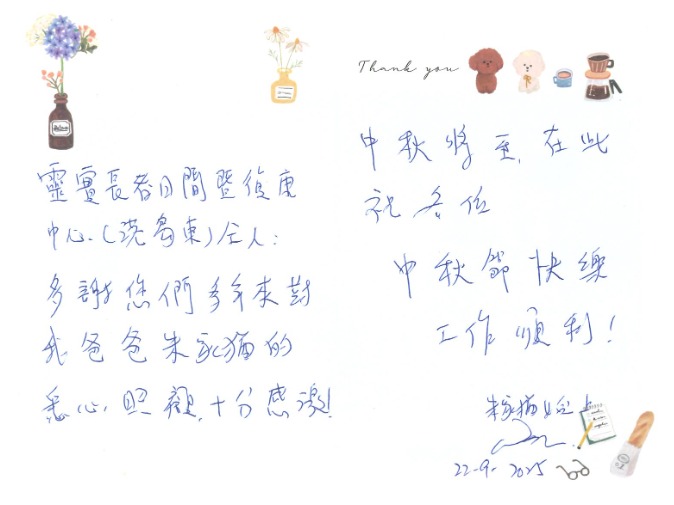 靈實長者日間暨復康
中心(港島東)仝人:
多謝您們多年來對
我爸爸朱家猫的
悉心照顧,十分感激!
Thank you
中秋將至,在此
祝各位
中秋節快樂
工作順利!
朱家猫 上
22-9-2025